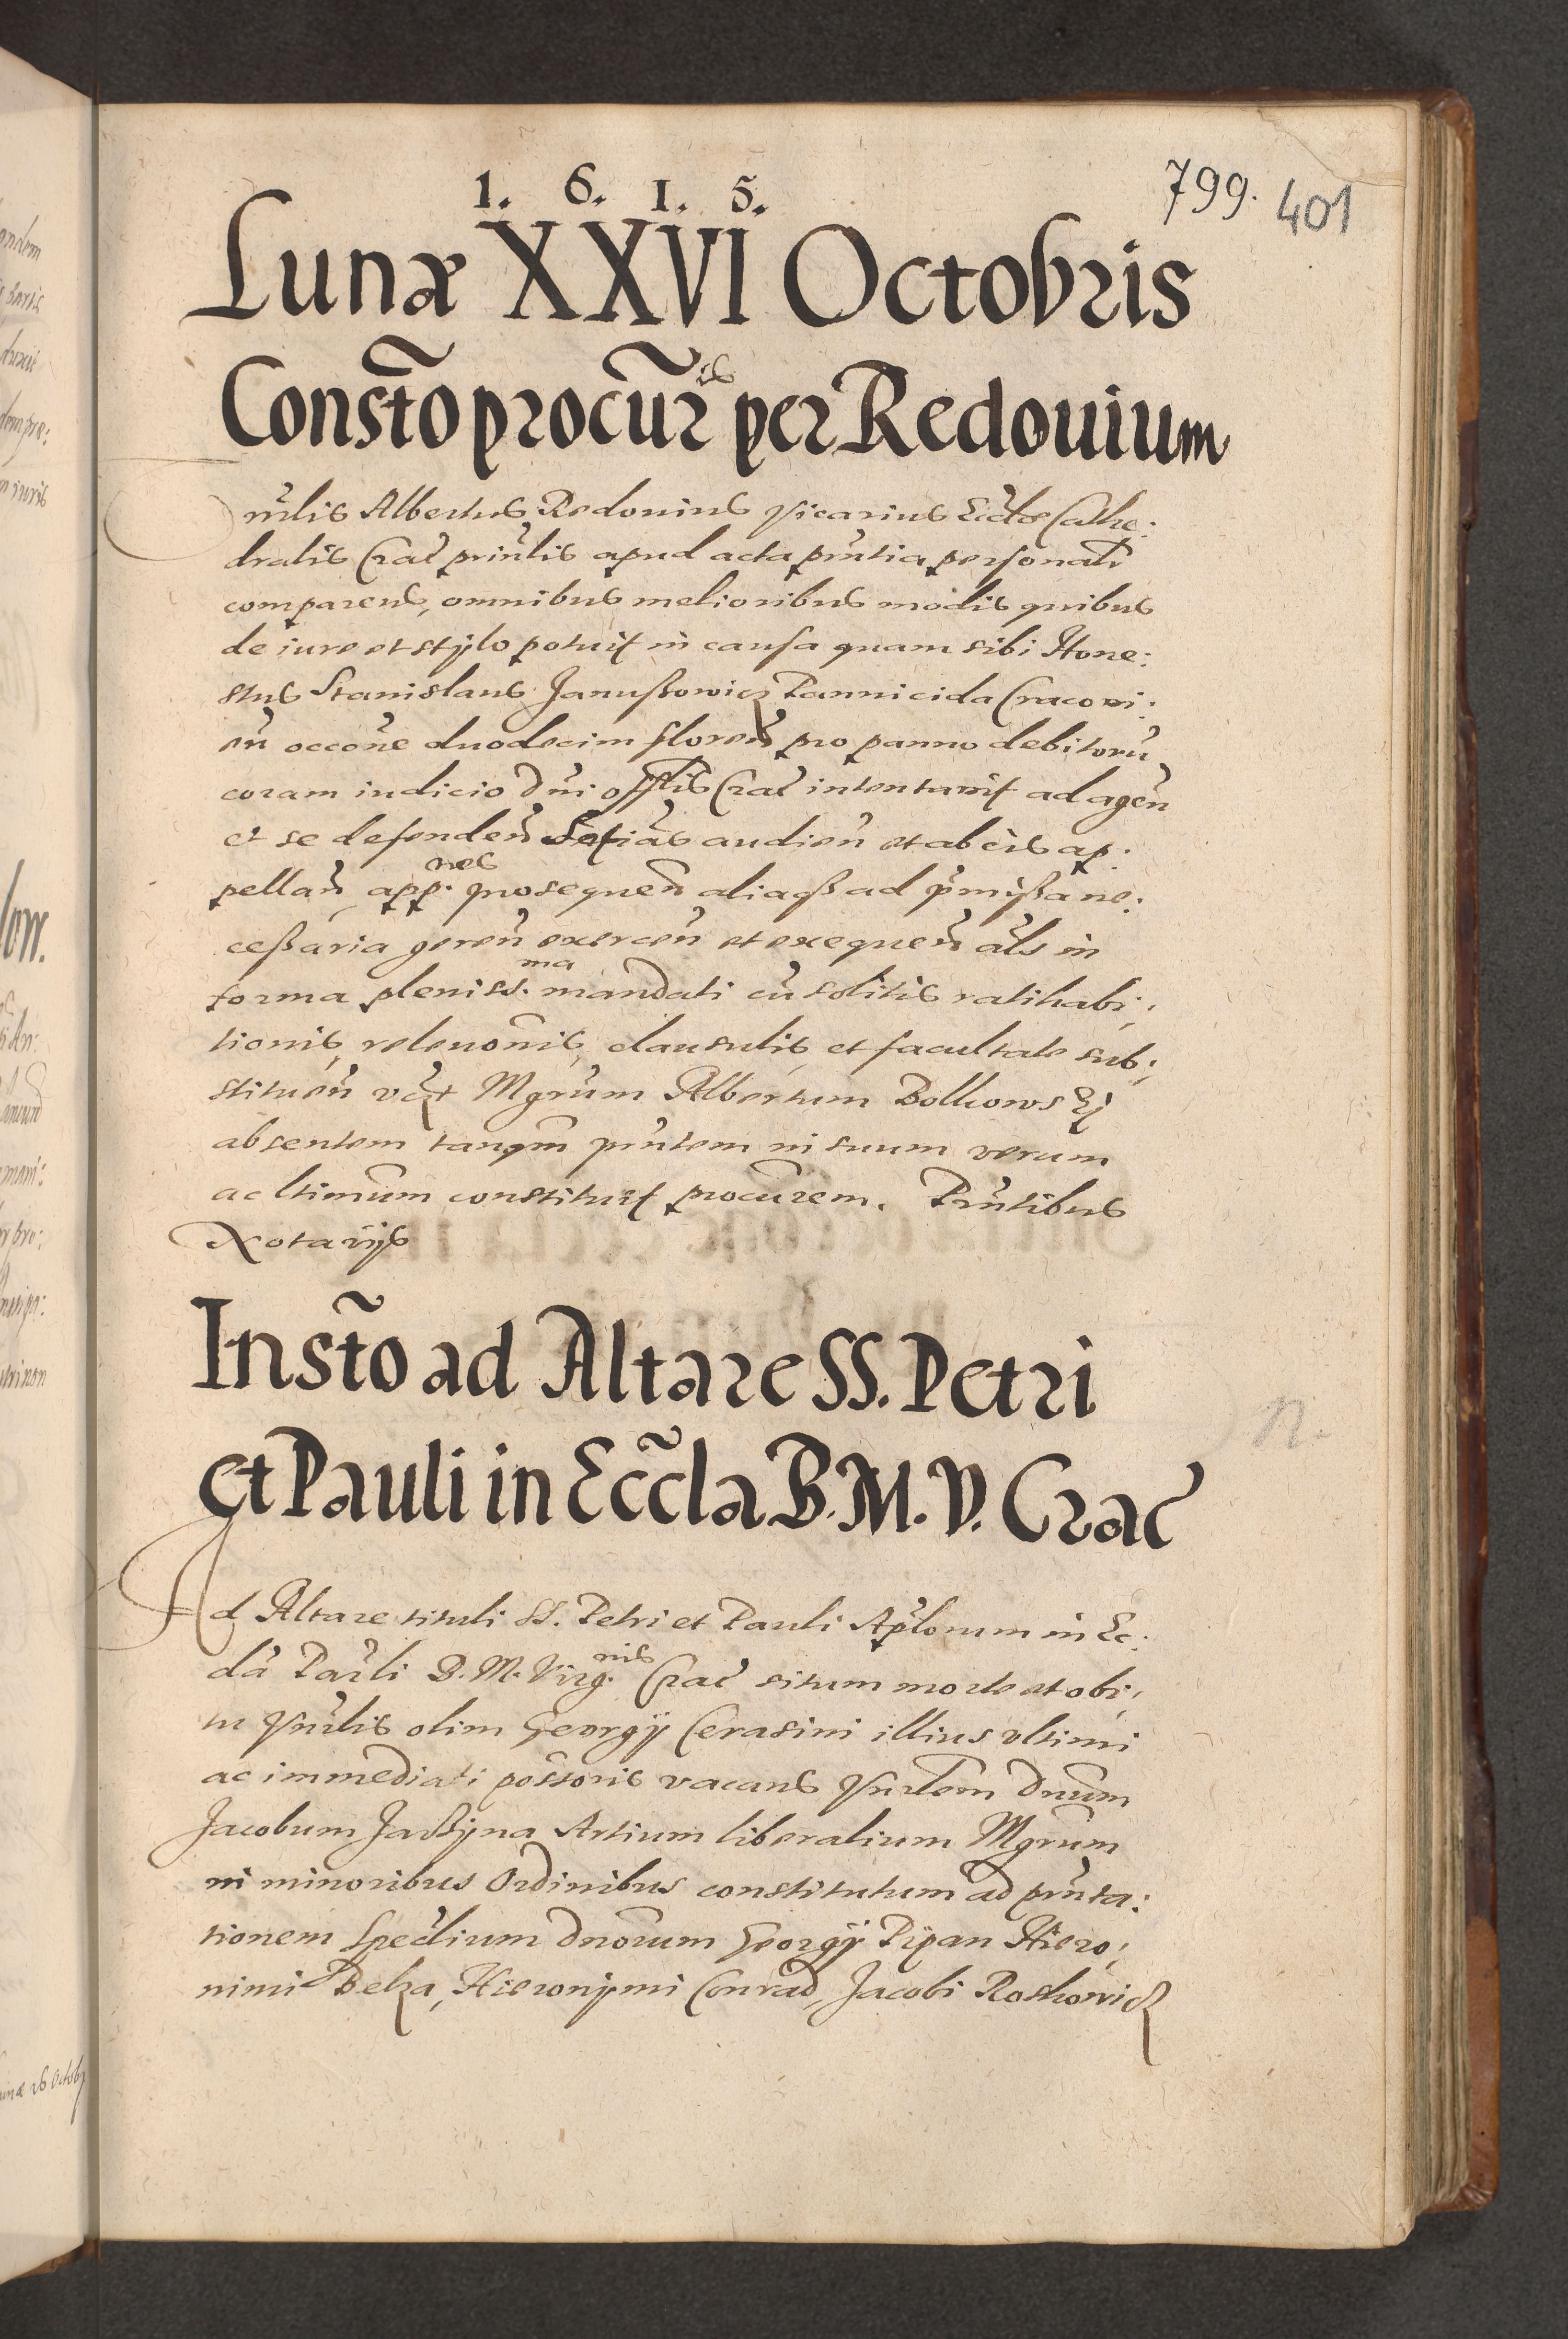 1. 6. 1. 5.
799. 401
Lunæ XXVI Octobris
Consto͠ procur͠is per Redouium
Vnr̃lis Albertus Redouius Vicarius Eccl̃æ Cathe:
dralis Crac̃ prin̄lis apud acta pn̄tia personal̃r
comparens, omnibus melioribus modis quibus
de iure et stylo potuit in causa quam sibi Hone:
stus Stanislaus Janußowicz Pannicida Cracovi:
eñ occoñe duodecim floreñ pro panno debitorũ
coram iudicio Dñi offłis Crac̃ intentavit ad ageñ
et se defendeñ Señtias audieñ et ab eis ap:
pellañ app:nes prosequeñ aliaqß ad p̃mißa ne:
ceßaria gereñ exerceñ et exequeñ als̃ in
forma pleniss:ma mandati cũ solitis ratihabi:
tionis, releuoñis, clausulis, et facultate sub:
stitueñ vc̃t Mgrũm Albertum
absentem tanqm̃ pñtem in suum verum
ac ltimũm constituit procur̃em. Pñtibus
Notarijs
Insto͠ ad Altare SS. Petri
et Pauli in Eccl̃a B. M. V. Crac̃
Ad Altare tituli SS. Petri et Pauli Aplorum in Ec:
cla Par̃li B. M. Virg:nis Crac̃ situm morte et obi:
tu Vnr̃lis olim Georgÿ Cerasini illius vltimi
ac immediati poss̃oris vacans Vnr̃lem Dnũm
Jacobum Artium liberalium Mgrũm
in minoribus Ordinibus constitutum ad pñta:
tionem Spectl̃ium Dnor̃um Georgÿ Pipan Hiero:
nimi Belza, Hieronymi Conrad, Jacobi Roskowicz
n.